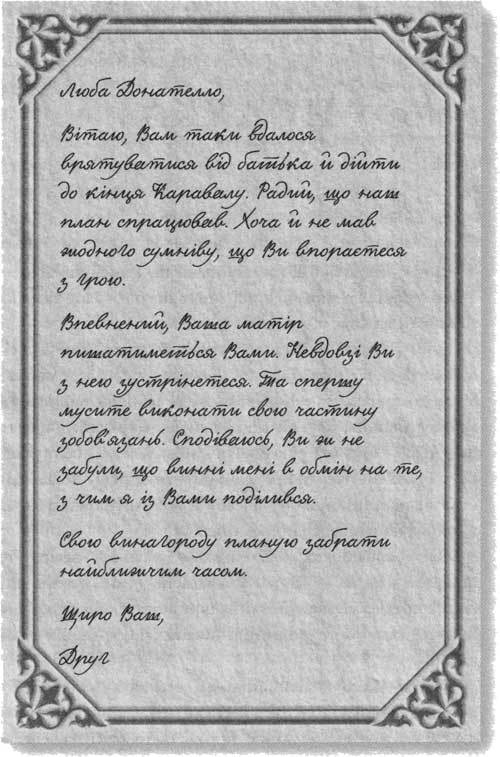 Люба Донателло,
Вітаю, Вам таки вдалося
врятуватися від батька й дійти
до кінця Каравалу. Радий, що наш
план спрацював. Хоча й не мав
жодного сумніву, що Ви впораєтеся
з грою.
Впевнений, Ваша матір
пишатиметься Вами. Невдовзі Ви
з нею зустрінетеся. Та спершу
мусите виконати свою частину
зобов'язань. Сподіваюсь, Ви ж не
забули, що винні мені в обмін на те,
з чим я із Вами поділився.
Свою винагороду планую забрати
найближчим часом.
Щиро Ваш,
Друг